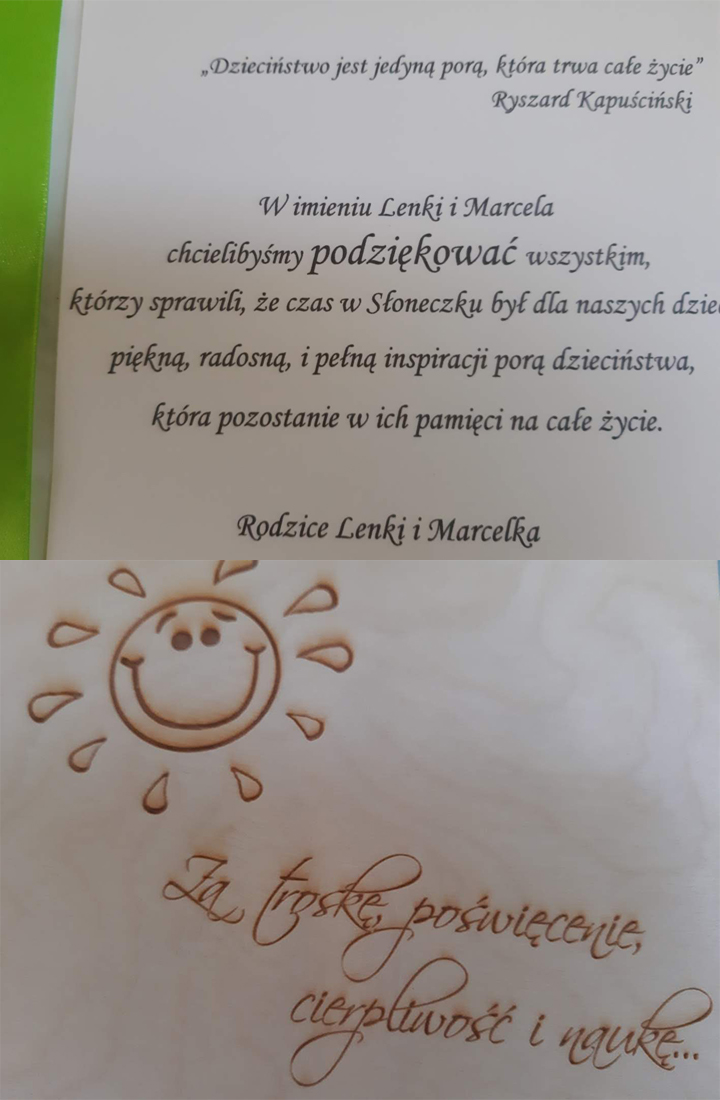 „Dzieciństwo jest jedyną porą, która trwa całe życie”
Ryszard Kapuściński
W imieniu Lenki i Marcela
chcielibyśmy podziękować wszystkim,
którzy sprawili, że czas w Słoneczku był dla naszych
piękną, radosną, i pełną inspiracji porą dzieciństwa,
która pozostanie w ich pamięci na całe życie.
Rodzice Lenki i Marcelka
Za troskę, poświęcenie,
cierpliwość i naukę...